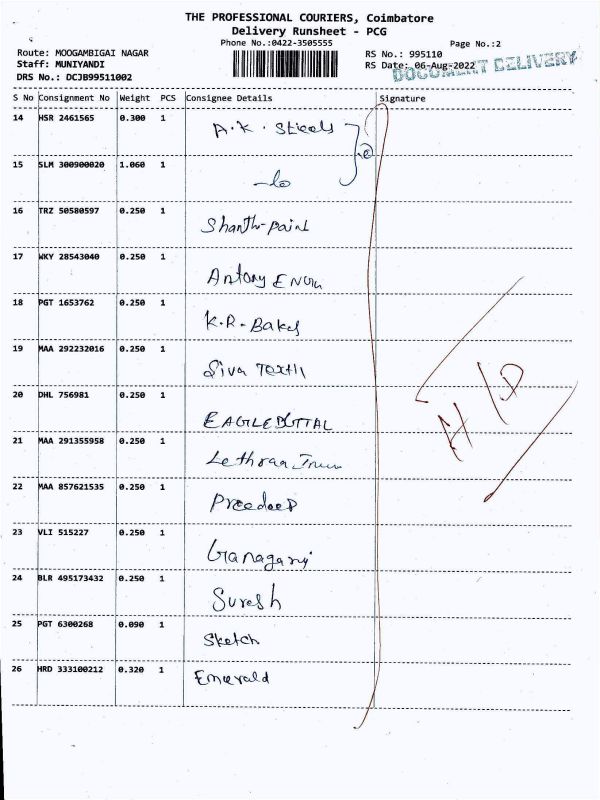 THE PROFESSIONAL COURIERS, Coimbatore
Delivery Runsheet - PCG
Phone No.:0422-3505555
Page No.:2
Route: MOOGAMBIGAI NAGAR
RS No.: 995110
Staff: MUNIYANDI
RS Date: 06-Aug-2022
DOCUMENT DELIVERY
DRS No.: DCJB99511002
S No Consignment No Weight PCS Consignee Details Signature
14 HSR 2461565 0.300 1 A.K. Steels
15 SLM 300900020 1.060 1
16 TRZ 50580597 0.250 1 Shanthi-paint
17 WKY 28543040 0.250 1 Antony
18 PGT 1653762 0.250 1 K.R-Bakes
19 MAA 292232016 0.250 1 Siva
20 DHL 756981 0.250 1
21 MAA 291355958 0.250 1
22 MAA 857621535 0.250 1 Preedeep
23 VLI 515227 0.250 1
24 BLR 495173432 0.250 1 Suresh
25 PGT 6300268 0.090 1 Sketch
26 HRD 333100212 0.320 1 Emerald